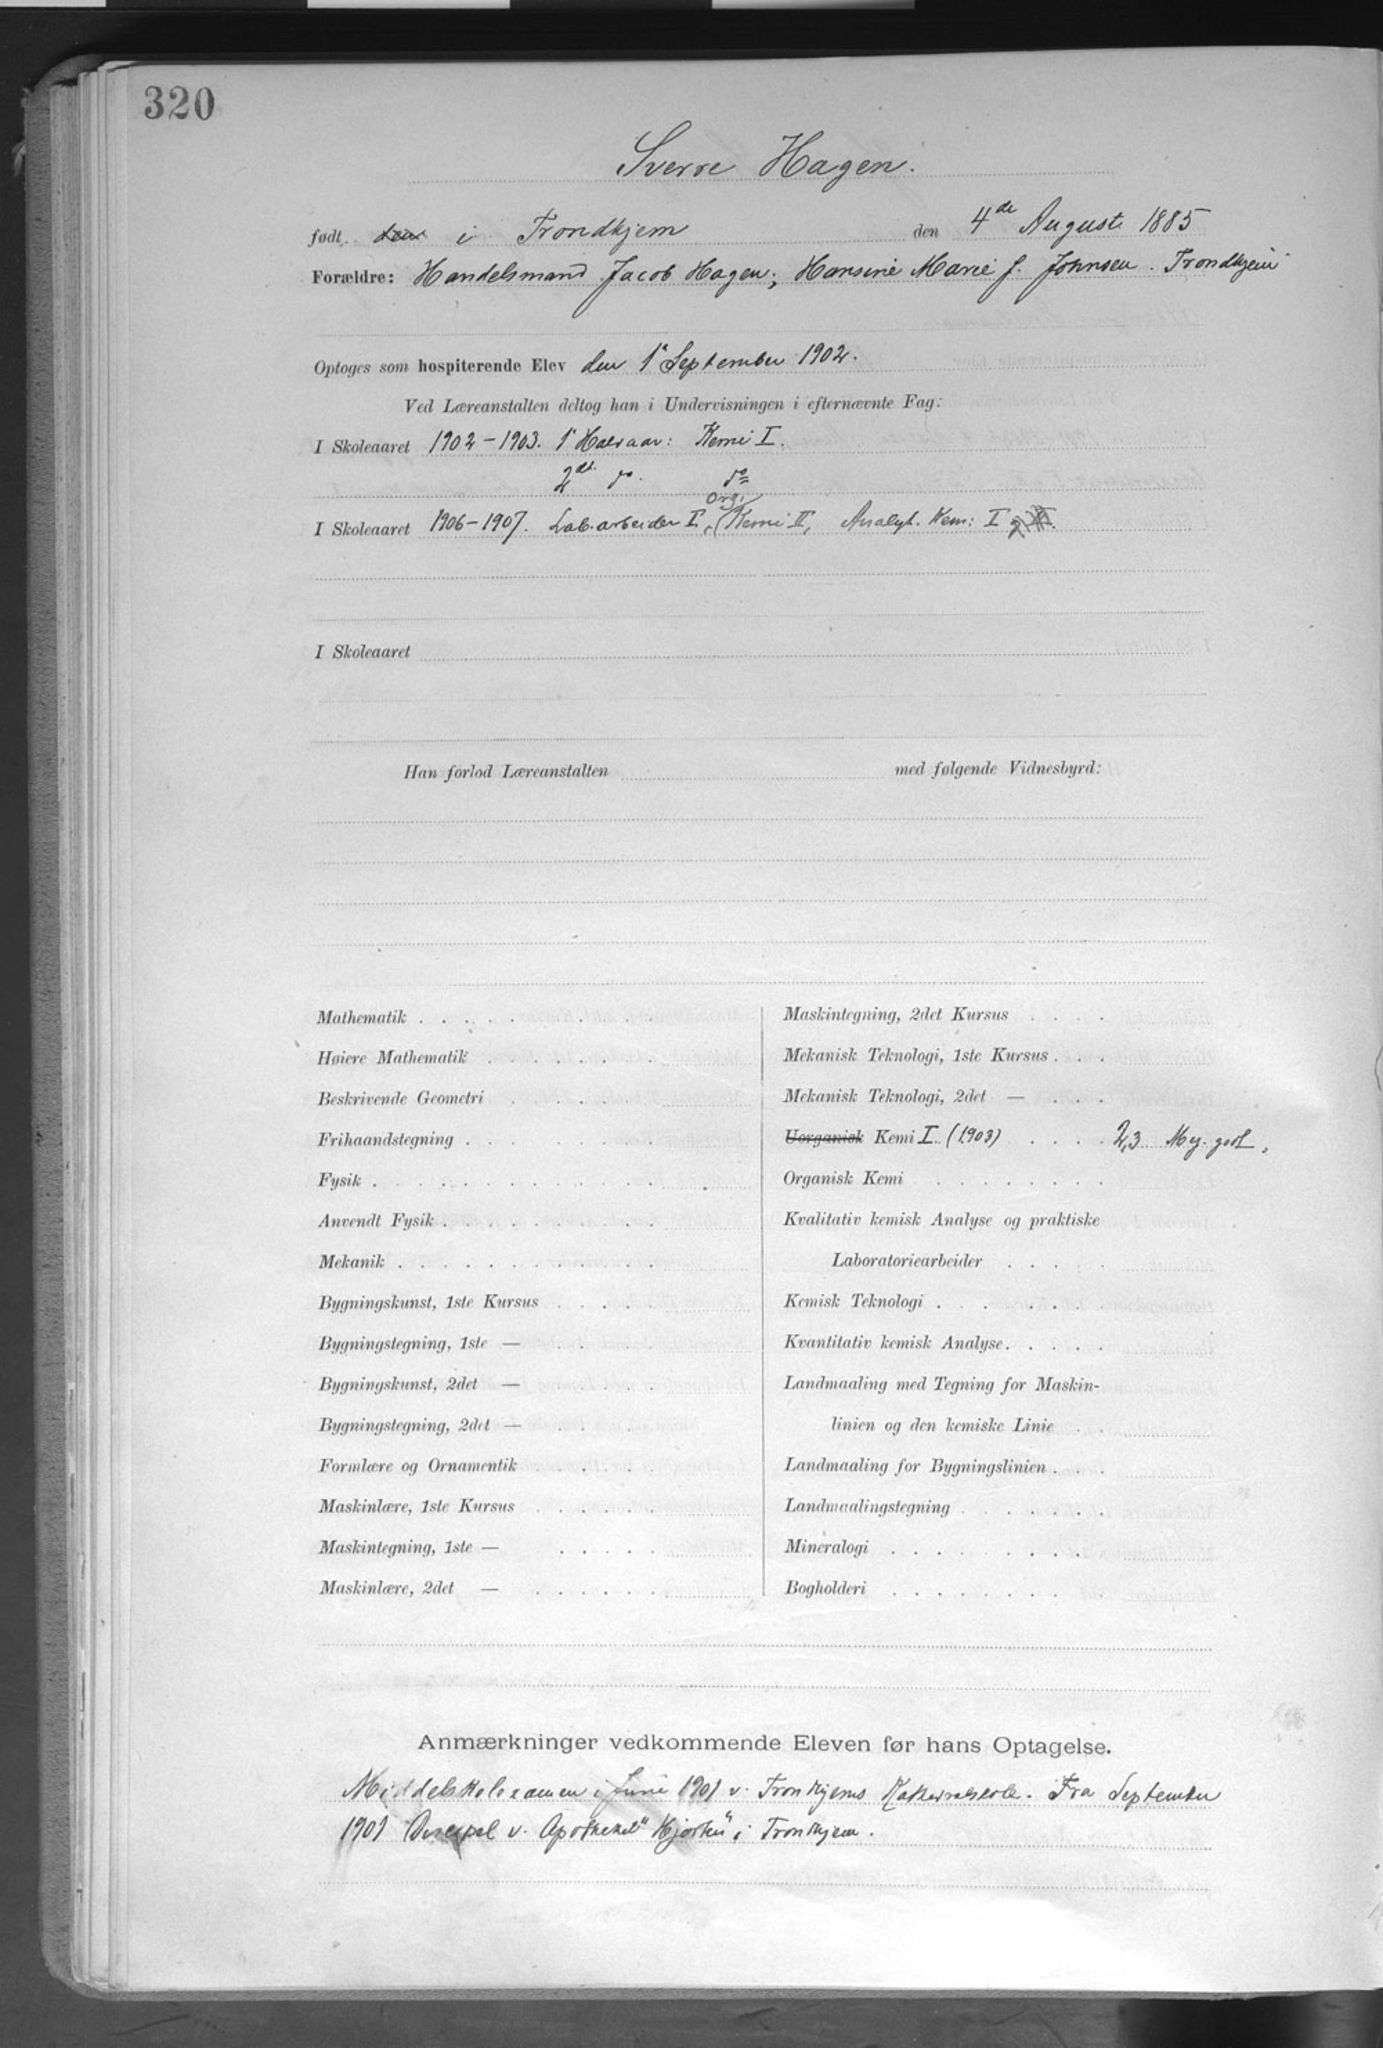 320
Sverre Hagen.
født den i Trondhjem den 4de August 1885
Forældre: Handelsmand Jacob Hagen; Hansine Marie f. Johnsen. Trondhjem
Optoges som hospiterende Elev den 1ste September 1902.
Ved Læreanstalten deltog han i Undervisningen i efternævnte Fag:
I Skoleaaret 1902-1903. 1ste Halvaar: Kemi I.
2det do. do
I Skoleaaret 1906-1907. Lab.arbeider I, Org. Kemi II, Analyt. Kem: I
I Skoleaaret
Han forlod Læreanstalten med følgende Vidnesbyrd:
Mathematik
Høiere Mathematik
Beskrivende Geometri
Frihaandstegning
Fysik
Anvendt Fysik
Mekanik
Bygningskunst, 1ste Kursus
Bygningstegning, 1ste —
Bygningskunst, 2det —
Bygningstegning, 2det —
Formlære og Ornamentik
Maskinlære, 1ste Kursus
Maskintegning, 1ste —
Maskinlære, 2det —
Maskintegning, 2det Kursus
Mekanisk Teknologi, 1ste Kursus
Mekanisk Teknologi, 2det —
Uorganisk Kemi I (1903) 2,3 Mg. godt,
Organisk Kemi
Kvalitativ kemisk Analyse og praktiske
Laboratoriearbeider
Kemisk Teknologi
Kvantitativ kemisk Analyse
Landmaaling med Tegning for Maskin-
linien og den kemiske Linie
Landmaaling for Bygningslinien
Landmaalingstegning
Mineralogi
Bogholderi
Anmærkninger vedkommende Eleven før hans Optagelse.
Middelskoleexamen i Juni 1901 v. Tronhjems Kathedralskole. Fra September
1901 Discipel v. Apotheket "Hjorten" i Tronhjem.